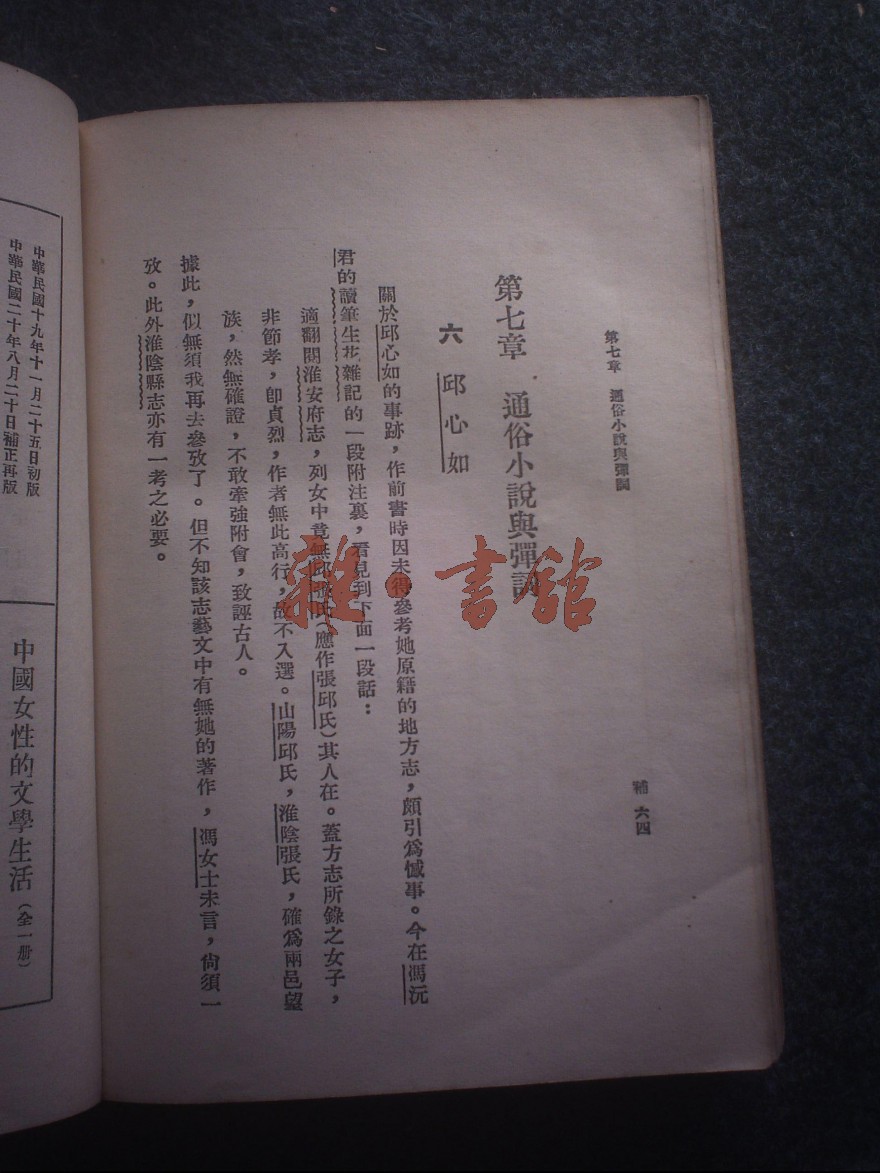 第七章　通俗小說與彈詞
補　六四
第七章　通俗小說與彈詞
六　邱心如
關於邱心如的事跡，作前書時因未得參考她原籍的地方志，頗引爲憾事。今在馮沅
君的讀筆生花雜記的一段附注裏，看見到下面一段話：
適翻閱淮安府志，列女中竟無邱張氏（應作張邱氏）其人在。蓋方志所錄之女子，
非節孝，卽貞烈，作者無此高行，故不入選。山陽邱氏，淮陰張氏，確爲兩邑望
族，然無確證，不敢牽強附會，致誣古人。
據此，似無須我再去參攷了。但不知該志藝文中有無她的著作，馮女士未言，尙須一
攷。此外淮陰縣志亦有一考之必要。
中華民國十九年十一月二十五日初版
中華民國二十年八月二十日補正再版
中國女性的文學生活（全一册）
雜·書館